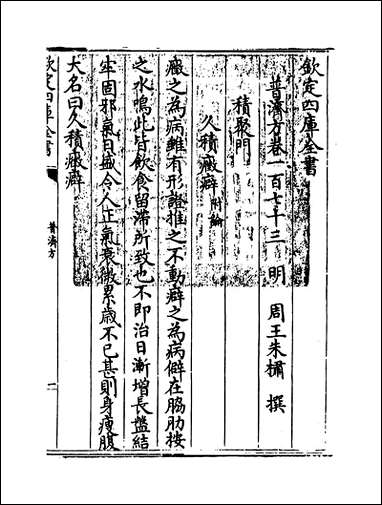 欽定四庫全書
普濟方卷一百七十三 明 周王朱橚 撰
積聚門
久積癥癖附論
癥之為病雖有形證推之不動癖之為病僻在脇肋按
之水鳴此皆飲食留滯所致也不即治日漸增長盤結
牢固邪氣日盛令人正氣衰微累歳不已甚則身瘦腹
大名曰久積癥癖
欽定四庫全書
普濟方